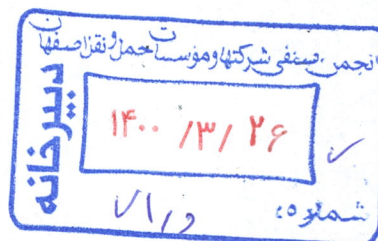 انجمن صنفی شرکتها و مؤسسات حمل و نقل اصفهان
دبیرخانه
۱۴۰۰ /۳/ ۲۶
شماره: